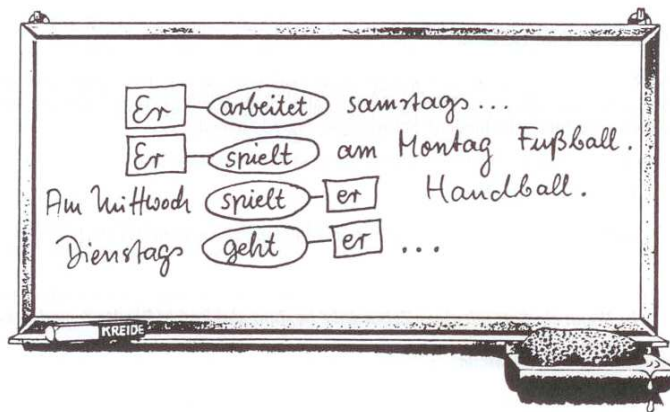 Er arbeitet samstags...
Er spielt am Montag Fußball.
Am Mittwoch spielt er Handball.
Dienstags geht er ...
KREIDE